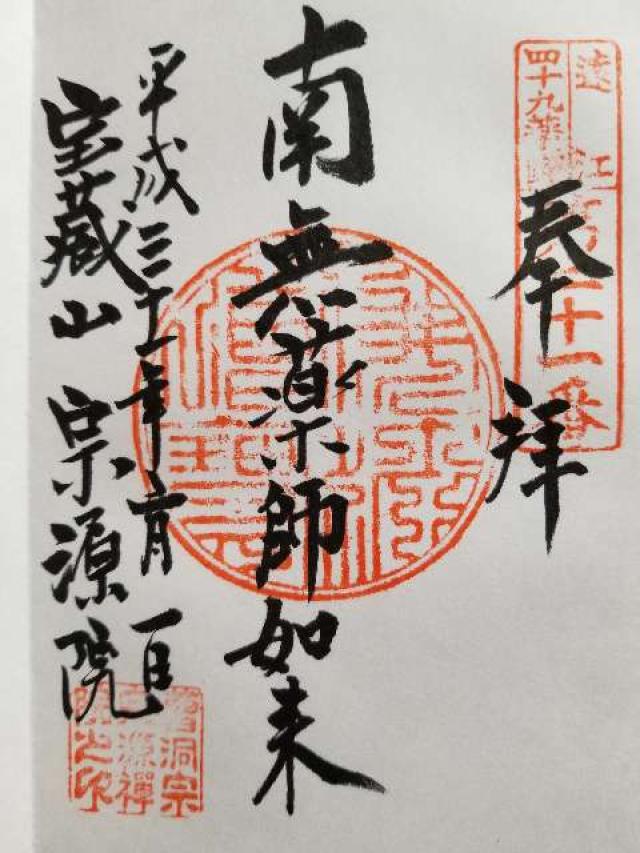 奉拝
遠江
四十九薬師
十一番
南無薬師如来
平成三十一年月一日
宝蔵山 宗源院
曹洞宗
宗源禪
院之印